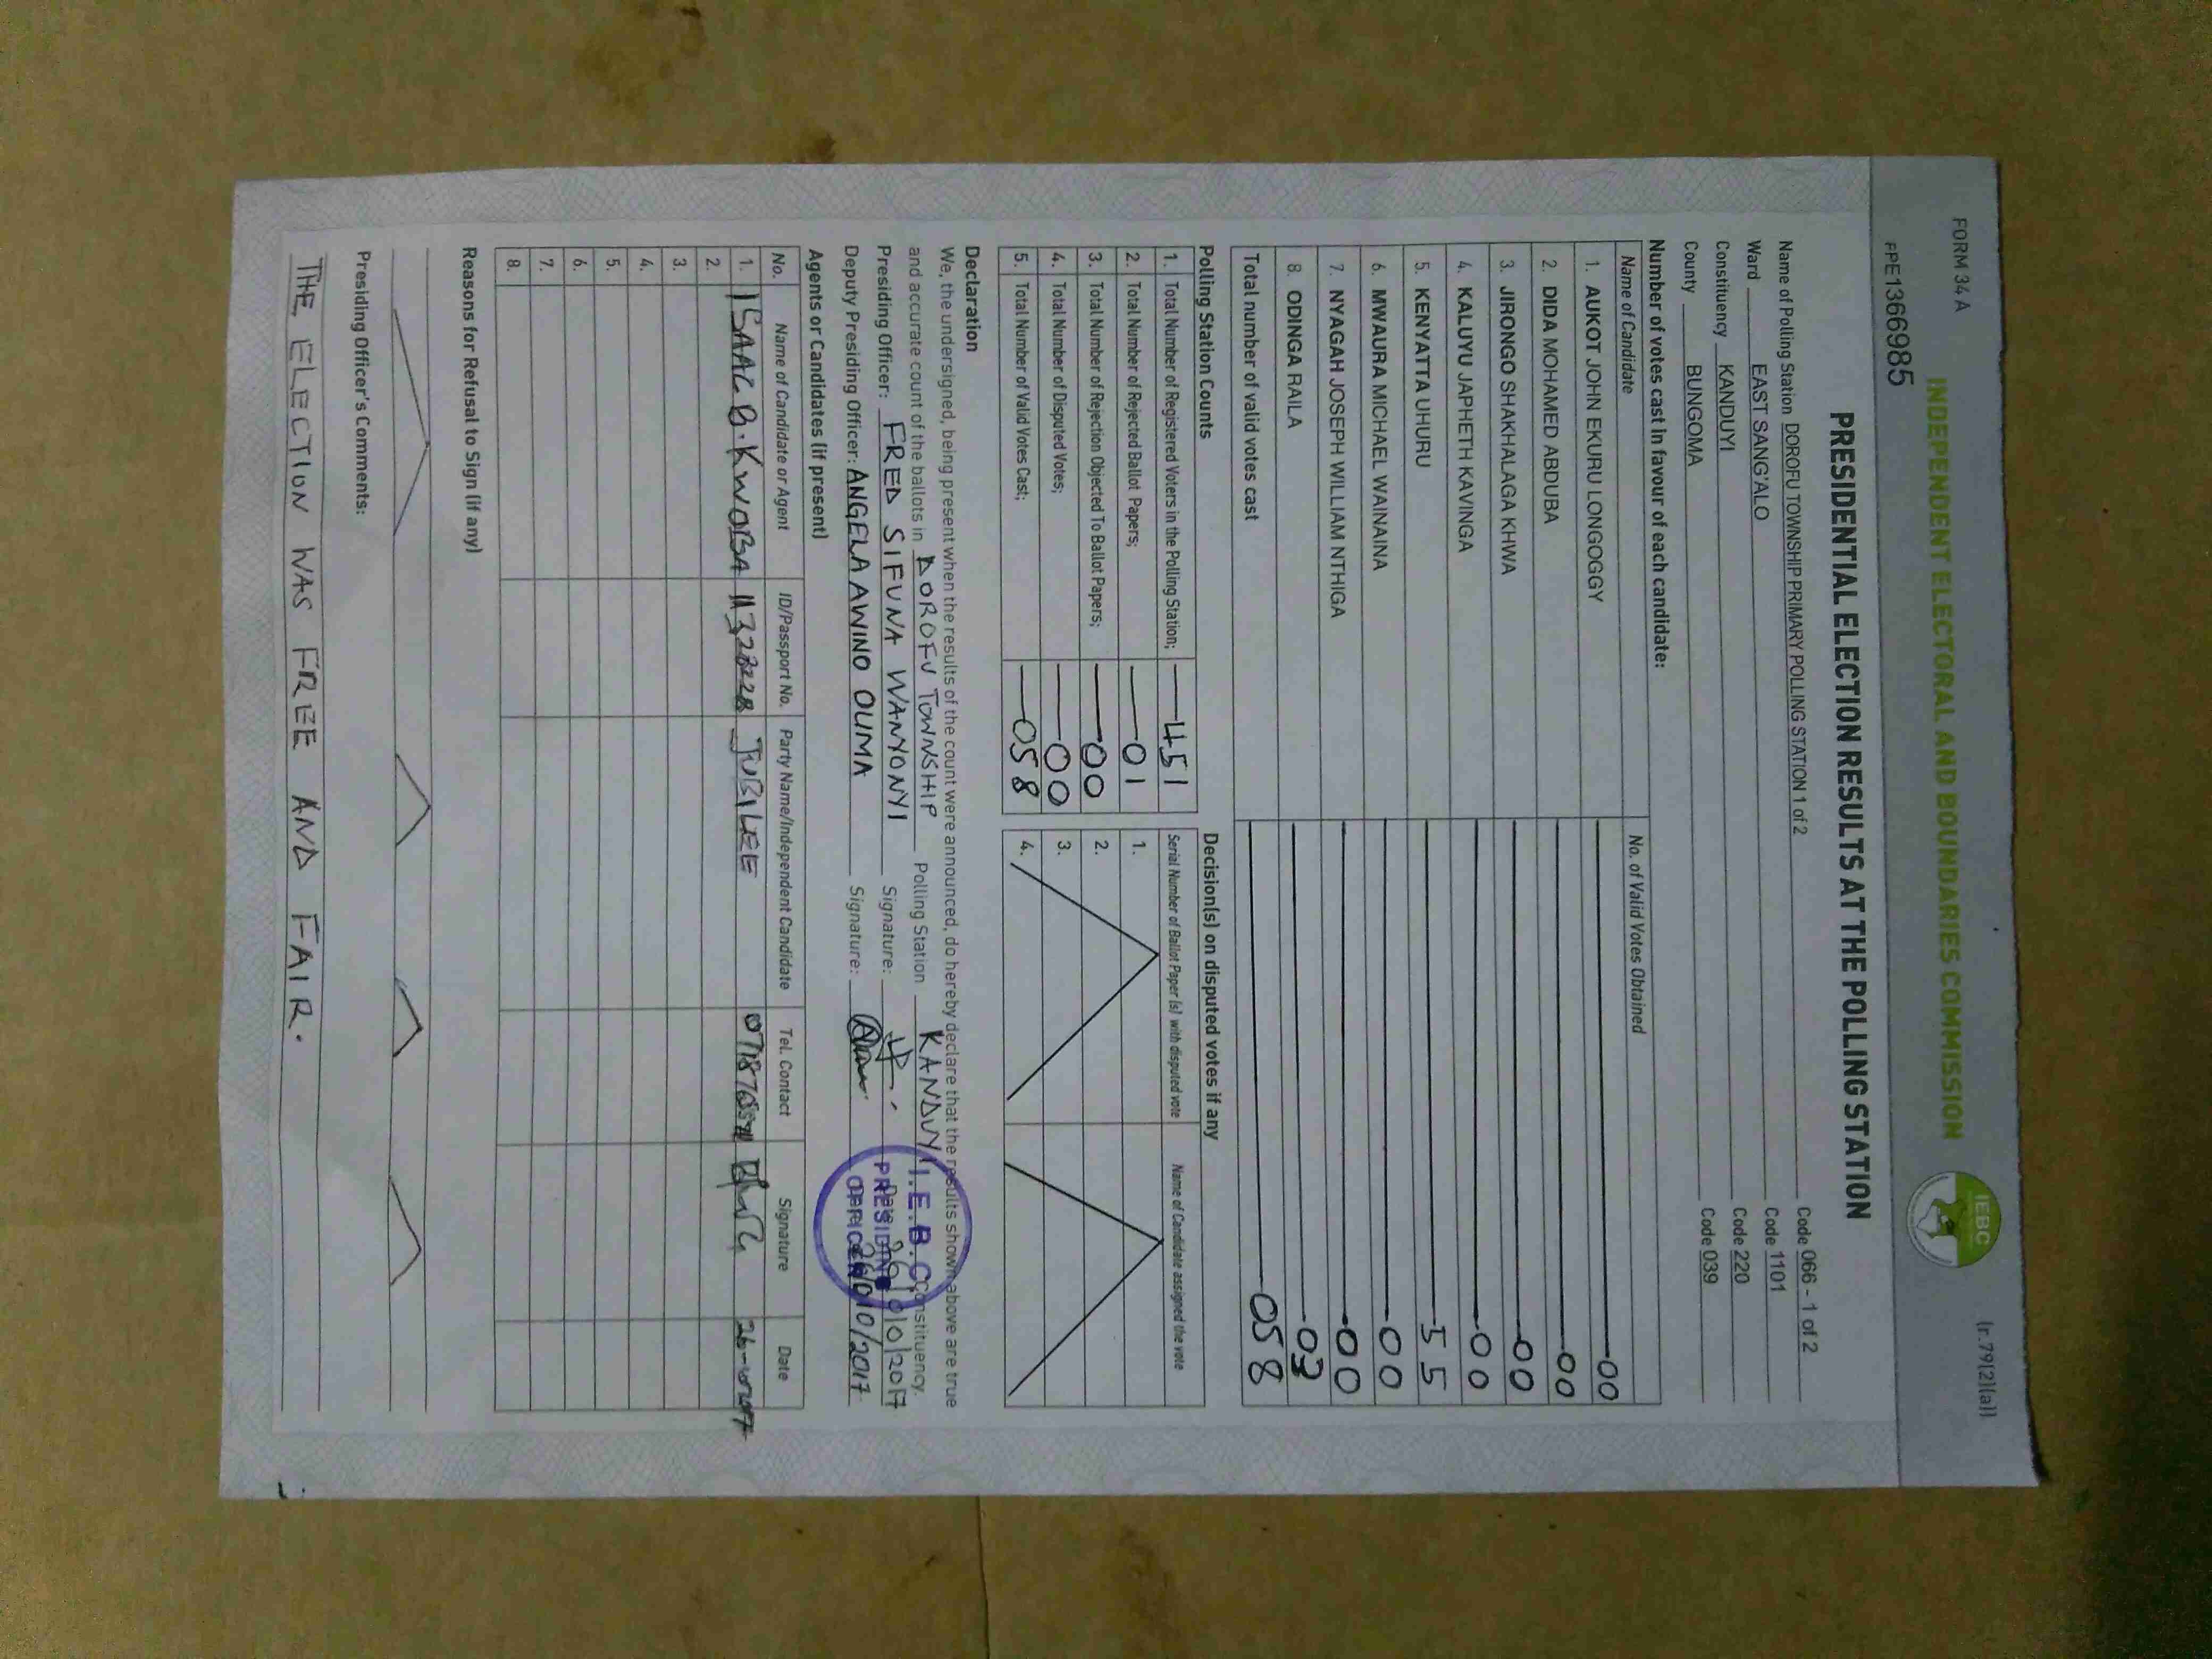 FORM 34 A
(r.79(2)(a))
INDEPENDENT ELECTORAL AND BOUNDARIES COMMISSION
IEBC
PPE1366985
PRESIDENTIAL ELECTION RESULTS AT THE POLLING STATION
Name of Polling Station DOROFU TOWNSHIP PRIMARY POLLING STATION 1 of 2 Code 066 - 1 of 2
Ward EAST SANG'ALO Code 1101
Constituency KANDUYI Code 220
County BUNGOMA Code 039
Number of votes cast in favour of each candidate:
Name of Candidate No. of Valid Votes Obtained
1. AUKOT JOHN EKURU LONGOGGY 00
2. DIDA MOHAMED ABDUBA 00
3. JIRONGO SHAKHALAGA KHWA 00
4. KALUYU JAPHETH KAVINGA 00
5. KENYATTA UHURU 55
6. MWAURA MICHAEL WAINAINA 00
7. NYAGAH JOSEPH WILLIAM NTHIGA 00
8. ODINGA RAILA 03
Total number of valid votes cast 058
Polling Station Counts
1. Total Number of Registered Voters in the Polling Station; 451
2. Total Number of Rejected Ballot Papers; 01
3. Total Number of Rejection Objected To Ballot Papers; 00
4. Total Number of Disputed Votes; 00
5. Total Number of Valid Votes Cast; 058
Decision(s) on disputed votes if any
Serial Number of Ballot Paper (s) with disputed vote Name of Candidate assigned the vote
1.
2.
3.
4.
Declaration
We, the undersigned, being present when the results of the count were announced, do hereby declare that the results shown above are true
and accurate count of the ballots in DOROFU TOWNSHIP Polling Station KANDUYI Constituency.
Presiding Officer: FRED SIFUNA WANYONYI Signature: Date 26/10/2017
Deputy Presiding Officer: ANGELA AWINO OUMA Signature: Date 26/10/2017
I.E.B.C
PRESIDING
OFFICER
Agents or Candidates (if present)
No. Name of Candidate or Agent ID/Passport No. Party Name/Independent Candidate Tel. Contact Signature Date
1. ISAAC B. KWOBA JUBILEE
2.
3.
4.
5.
6.
7.
8.
Reasons for Refusal to Sign (if any)
Presiding Officer's Comments:
THE ELECTION WAS FREE AND FAIR.